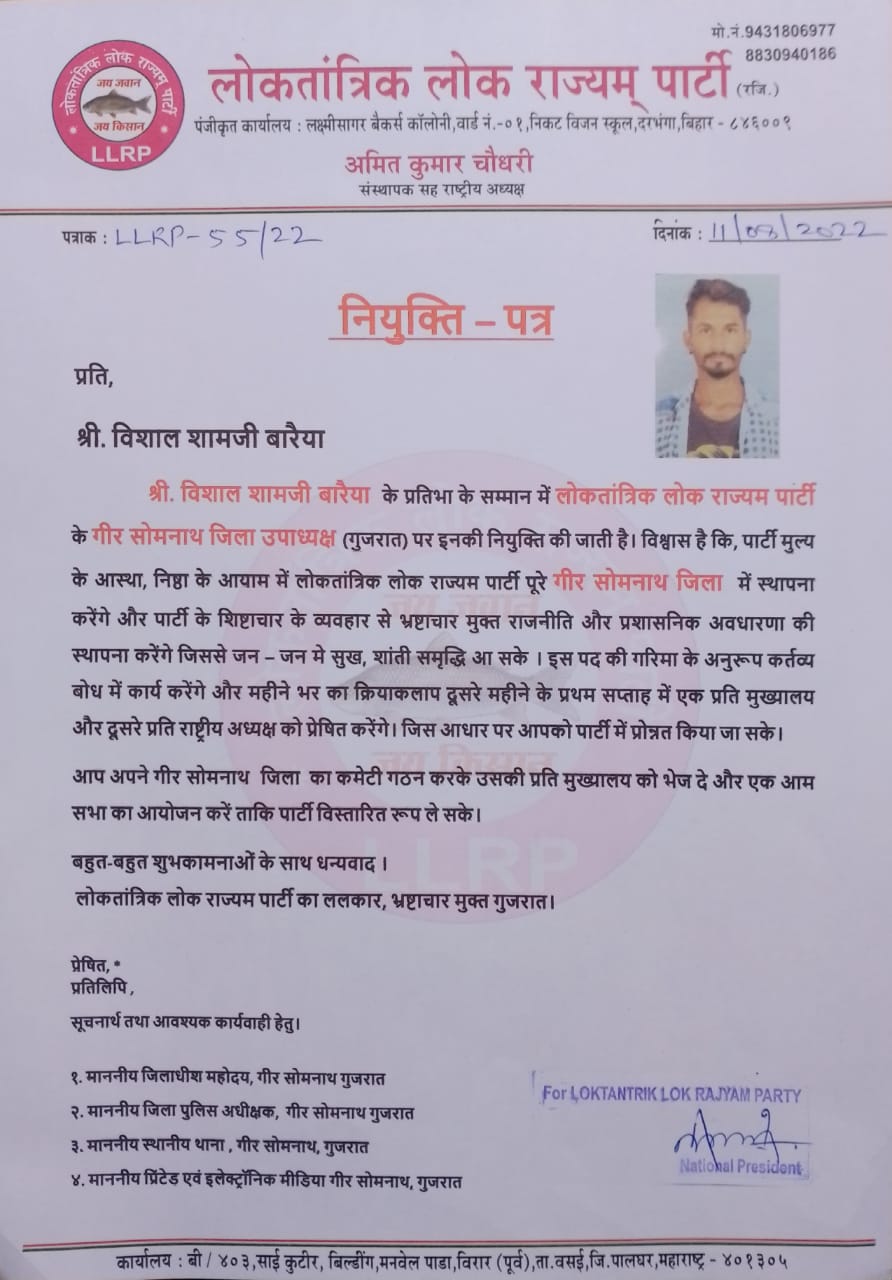 मो.नं.9431806977
8830940186
लोकतांत्रिक लोक राज्यम् पार्टी
जय जवान
जय किसान
LLRP
लोकतांत्रिक लोक राज्यम् पार्टी (रजि.)
पंजीकृत कार्यालय : लक्ष्मीसागर बैकर्स कॉलोनी,वार्ड नं.-०१,निकट विजन स्कूल,दरभंगा,बिहार - ८४६००९
अमित कुमार चौधरी
संस्थापक सह राष्ट्रीय अध्यक्ष
पत्राक : LLRP-55/22
दिनांक : 11/08/2022
नियुक्ति – पत्र
प्रति,
श्री. विशाल शामजी बारैया
श्री. विशाल शामजी बारैया के प्रतिभा के सम्मान में लोकतांत्रिक लोक राज्यम पार्टी
के गीर सोमनाथ जिला उपाध्यक्ष (गुजरात) पर इनकी नियुक्ति की जाती है। विश्वास है कि, पार्टी मुल्य
के आस्था, निष्ठा के आयाम में लोकतांत्रिक लोक राज्यम पार्टी पूरे गीर सोमनाथ जिला में स्थापना
करेंगे और पार्टी के शिष्टाचार के व्यवहार से भ्रष्टाचार मुक्त राजनीति और प्रशासनिक अवधारणा की
स्थापना करेंगे जिससे जन – जन मे सुख, शांती समृद्धि आ सके । इस पद की गरिमा के अनुरूप कर्तव्य
बोध में कार्य करेंगे और महीने भर का क्रियाकलाप दूसरे महीने के प्रथम सप्ताह में एक प्रति मुख्यालय
और दूसरे प्रति राष्ट्रीय अध्यक्ष को प्रेषित करेंगे। जिस आधार पर आपको पार्टी में प्रोन्नत किया जा सके।
आप अपने गीर सोमनाथ जिला का कमेटी गठन करके उसकी प्रति मुख्यालय को भेज दे और एक आम
सभा का आयोजन करें ताकि पार्टी विस्तारित रूप ले सके।
बहुत-बहुत शुभकामनाओं के साथ धन्यवाद ।
लोकतांत्रिक लोक राज्यम पार्टी का ललकार, भ्रष्टाचार मुक्त गुजरात।
प्रेषित, *
प्रतिलिपि ,
सूचनार्थ तथा आवश्यक कार्यवाही हेतु।
१. माननीय जिलाधीश महोदय, गीर सोमनाथ गुजरात
२. माननीय जिला पुलिस अधीक्षक, गीर सोमनाथ गुजरात
३. माननीय स्थानीय थाना , गीर सोमनाथ, गुजरात
४. माननीय प्रिंटेड एवं इलेक्ट्रॉनिक मीडिया गीर सोमनाथ, गुजरात
For LOKTANTRIK LOK RAJYAM PARTY
National President
कार्यालय : बी / ४०३,साई कुटीर, बिल्डींग,मनवेल पाडा,विरार (पूर्व),ता.वसई,जि.पालघर,महाराष्ट्र - ४०१३०५